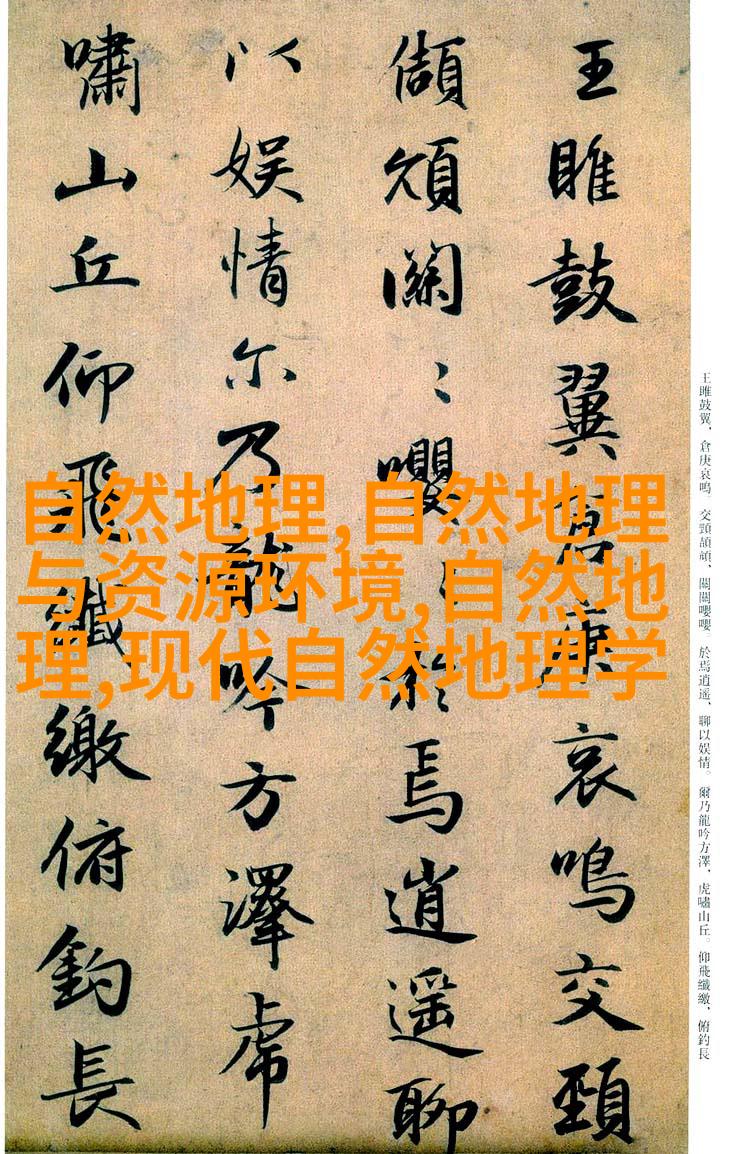 王雎鼓翼倉庚哀鳴交頸
頡頏關〻嚶〻於焉逍遥聊
以娱情尓乃龍吟方澤虎
嘯山丘仰飛纖繳俯釣長
王雎鼓翼、倉庚哀鳴。交頸頡頏、關關嚶嚶。於焉逍遥、聊以娱情。爾乃龍吟方澤、虎嘯山丘。仰飛纖繳、俯釣長
自然地理,自然地理
与资源环境,自然地
理,现代自然地理学